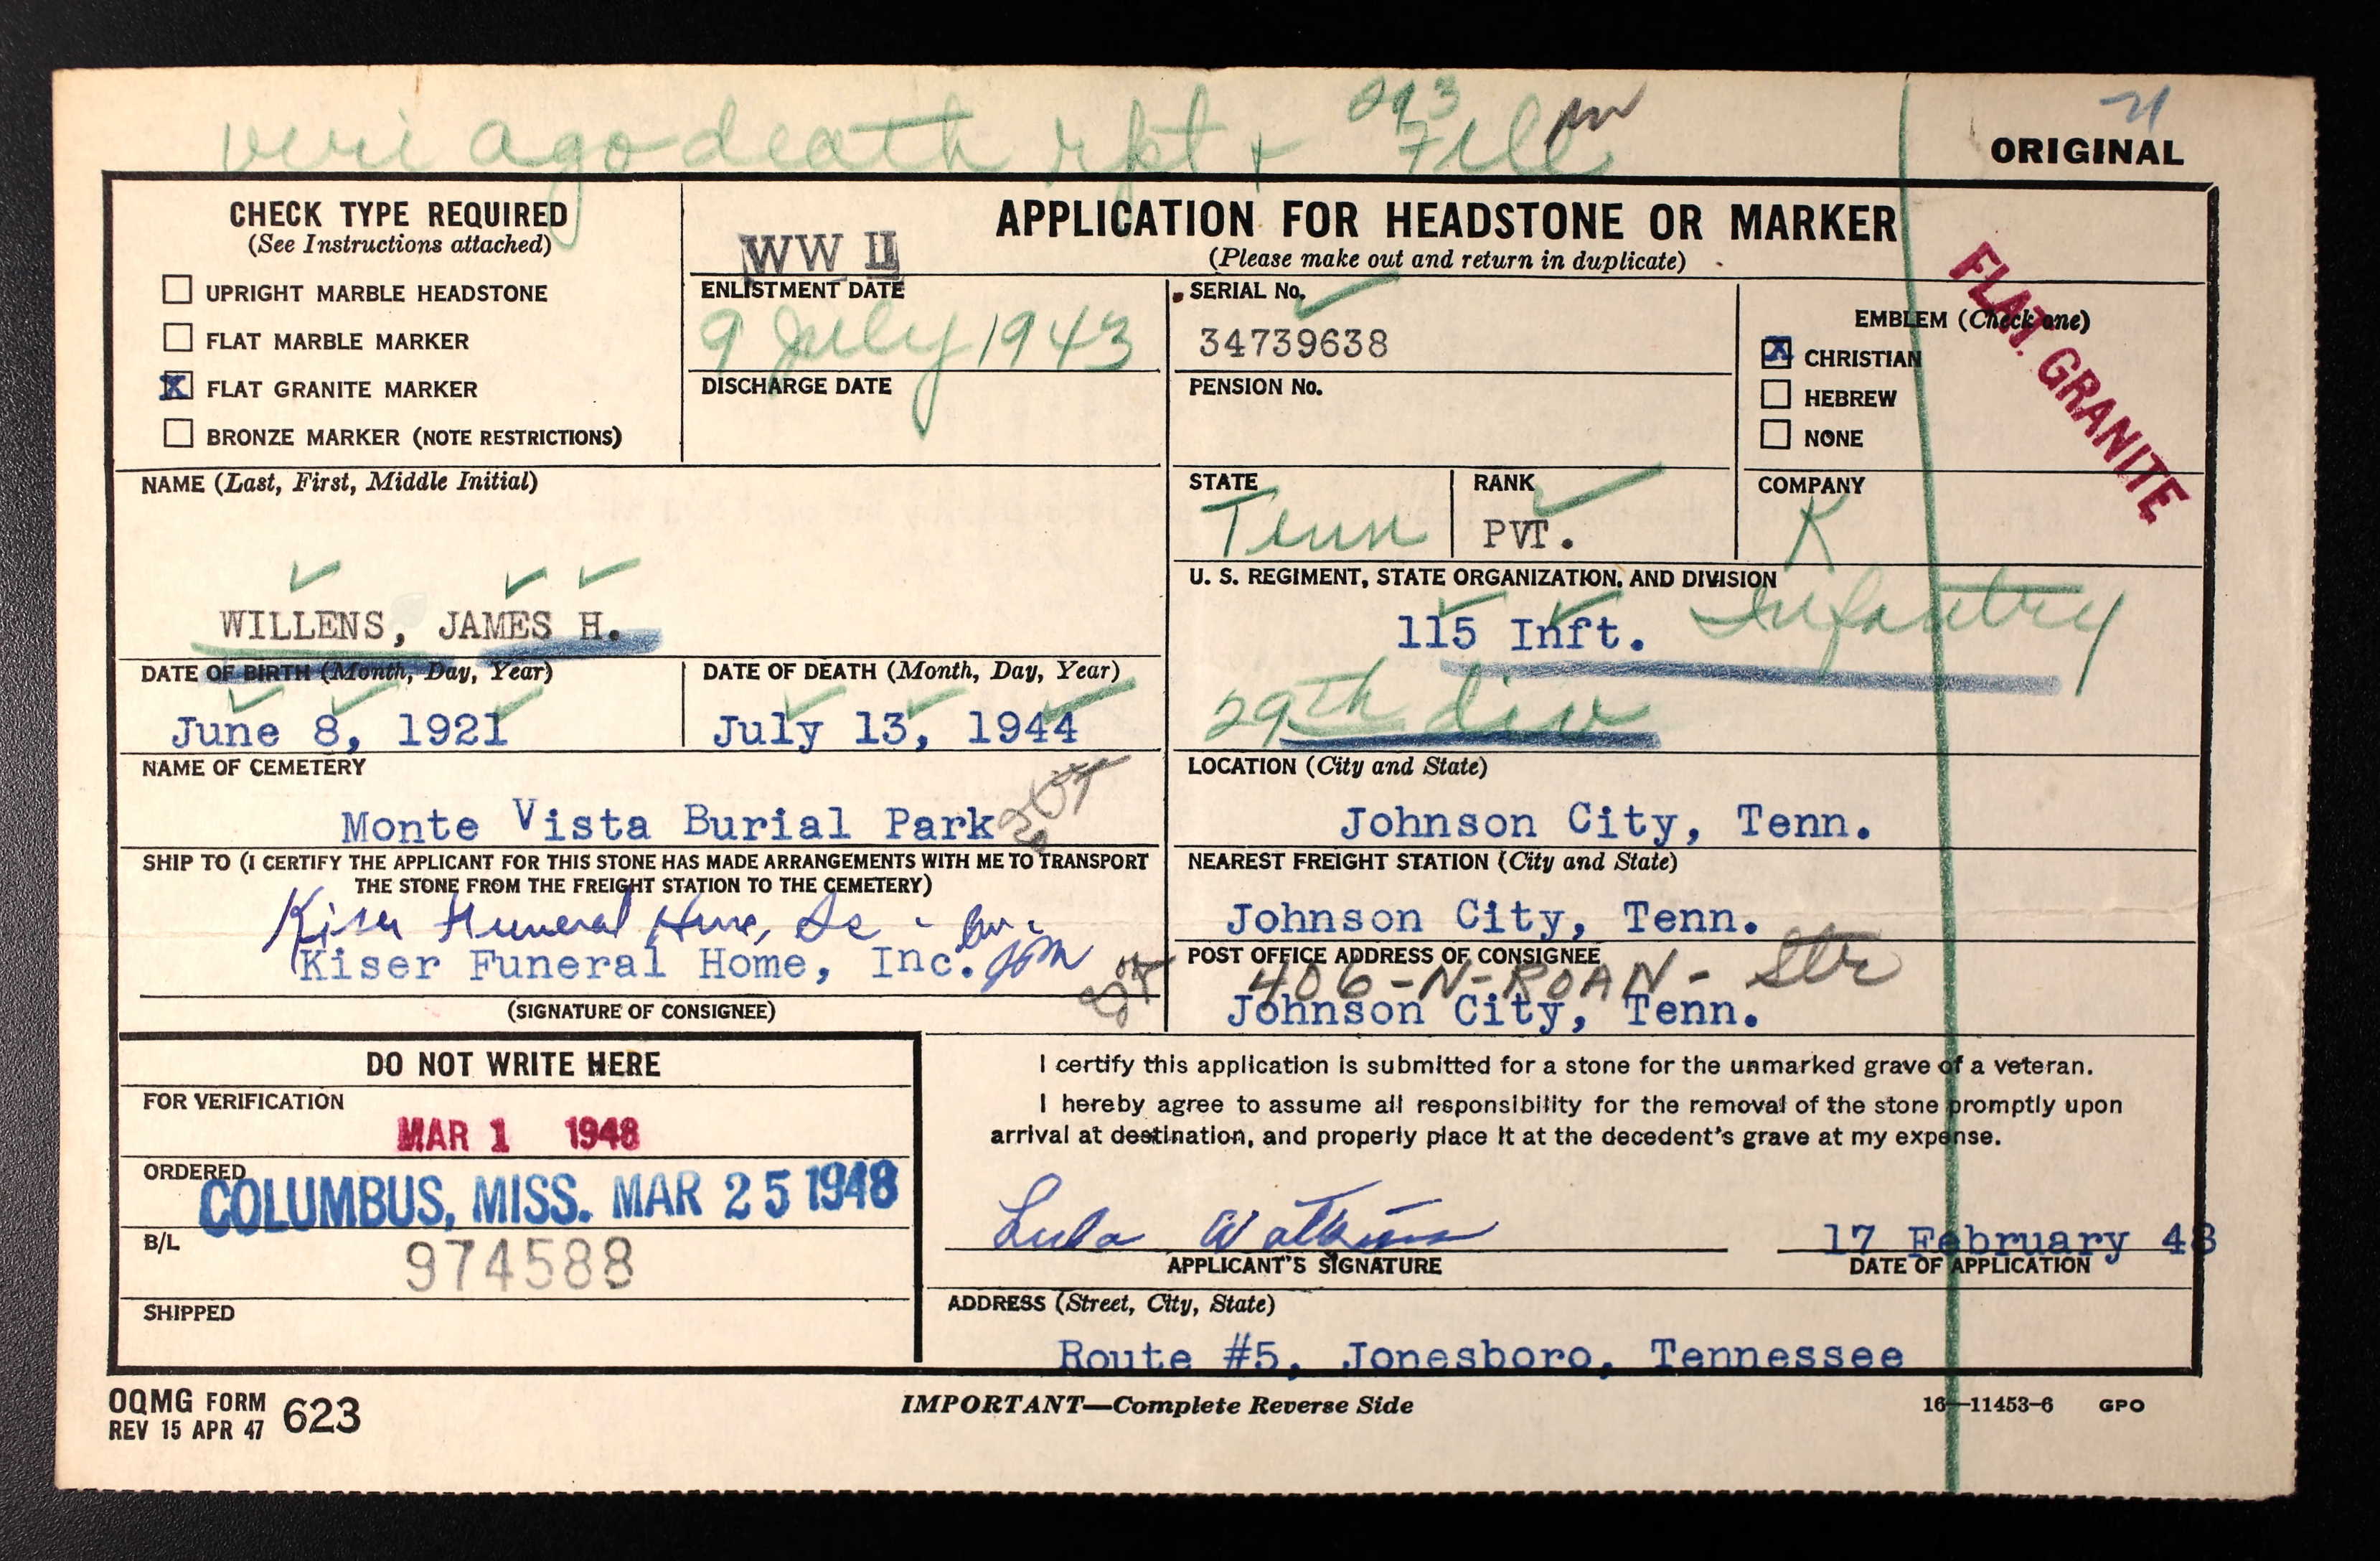 veri ago death rpt + 293 File
ORIGINAL
CHECK TYPE REQUIRED
(See Instructions attached)
UPRIGHT MARBLE HEADSTONE
FLAT MARBLE MARKER
X FLAT GRANITE MARKER
BRONZE MARKER (NOTE RESTRICTIONS)
WW II
APPLICATION FOR HEADSTONE OR MARKER
(Please make out and return in duplicate)
ENLISTMENT DATE
9 July 1943
DISCHARGE DATE
SERIAL No.
34739638
PENSION No.
EMBLEM (Check one)
X CHRISTIAN
HEBREW
NONE
FLAT GRANITE
NAME (Last, First, Middle Initial)
WILLENS, JAMES H.
STATE
Tenn
RANK
PVT.
COMPANY
K
U. S. REGIMENT, STATE ORGANIZATION, AND DIVISION
115 Inft. Infantry
29th div
DATE OF BIRTH (Month, Day, Year)
June 8, 1921
DATE OF DEATH (Month, Day, Year)
July 13, 1944
NAME OF CEMETERY
Monte Vista Burial Park
LOCATION (City and State)
Johnson City, Tenn.
SHIP TO (I CERTIFY THE APPLICANT FOR THIS STONE HAS MADE ARRANGEMENTS WITH ME TO TRANSPORT
THE STONE FROM THE FREIGHT STATION TO THE CEMETERY)
Kiser Funeral Home,
Kiser Funeral Home, Inc.
(SIGNATURE OF CONSIGNEE)
NEAREST FREIGHT STATION (City and State)
Johnson City, Tenn.
POST OFFICE ADDRESS OF CONSIGNEE
406-N-ROAN- Str
Johnson City, Tenn.
DO NOT WRITE HERE
FOR VERIFICATION
MAR 1 1948
ORDERED
COLUMBUS, MISS. MAR 25 1948
B/L
974588
SHIPPED
I certify this application is submitted for a stone for the unmarked grave of a veteran.
I hereby agree to assume all responsibility for the removal of the stone promptly upon
arrival at destination, and properly place it at the decedent's grave at my expense.
Lula Watkins
APPLICANT'S SIGNATURE
17 February 48
DATE OF APPLICATION
ADDRESS (Street, City, State)
Route #5, Jonesboro, Tennessee
OQMG FORM 623
REV 15 APR 47
IMPORTANT—Complete Reverse Side
16—11453-6 GPO